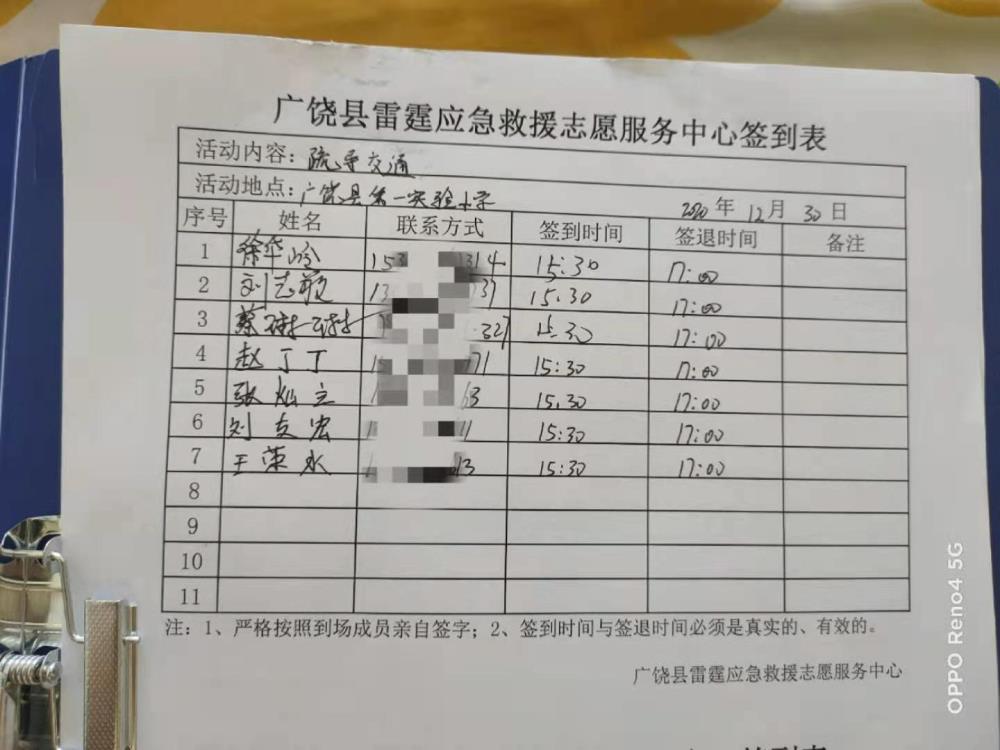 广饶县雷霆应急救援志愿服务中心签到表
活动内容：疏导交通
活动地点：广饶县第一实验小学 2020年12月30日
序号 姓名 联系方式 签到时间 签退时间 备注
1 徐华岭 15 314 15:30 17:00
2 刘志敬 13 37 15.30 17:00
3 蔡 327 15.30 17:00
4 赵丁丁 15 71 15:30 17:00
5 张灿立 1 63 15.30 17:00
6 刘文宏 1 11 15:30 17:00
7 王荣水 13 15:30 17:00
8
9
10
11
注：1、严格按照到场成员亲自签字；2、签到时间与签退时间必须是真实的、有效的。
广饶县雷霆应急救援志愿服务中心
OPPO Reno4 5G